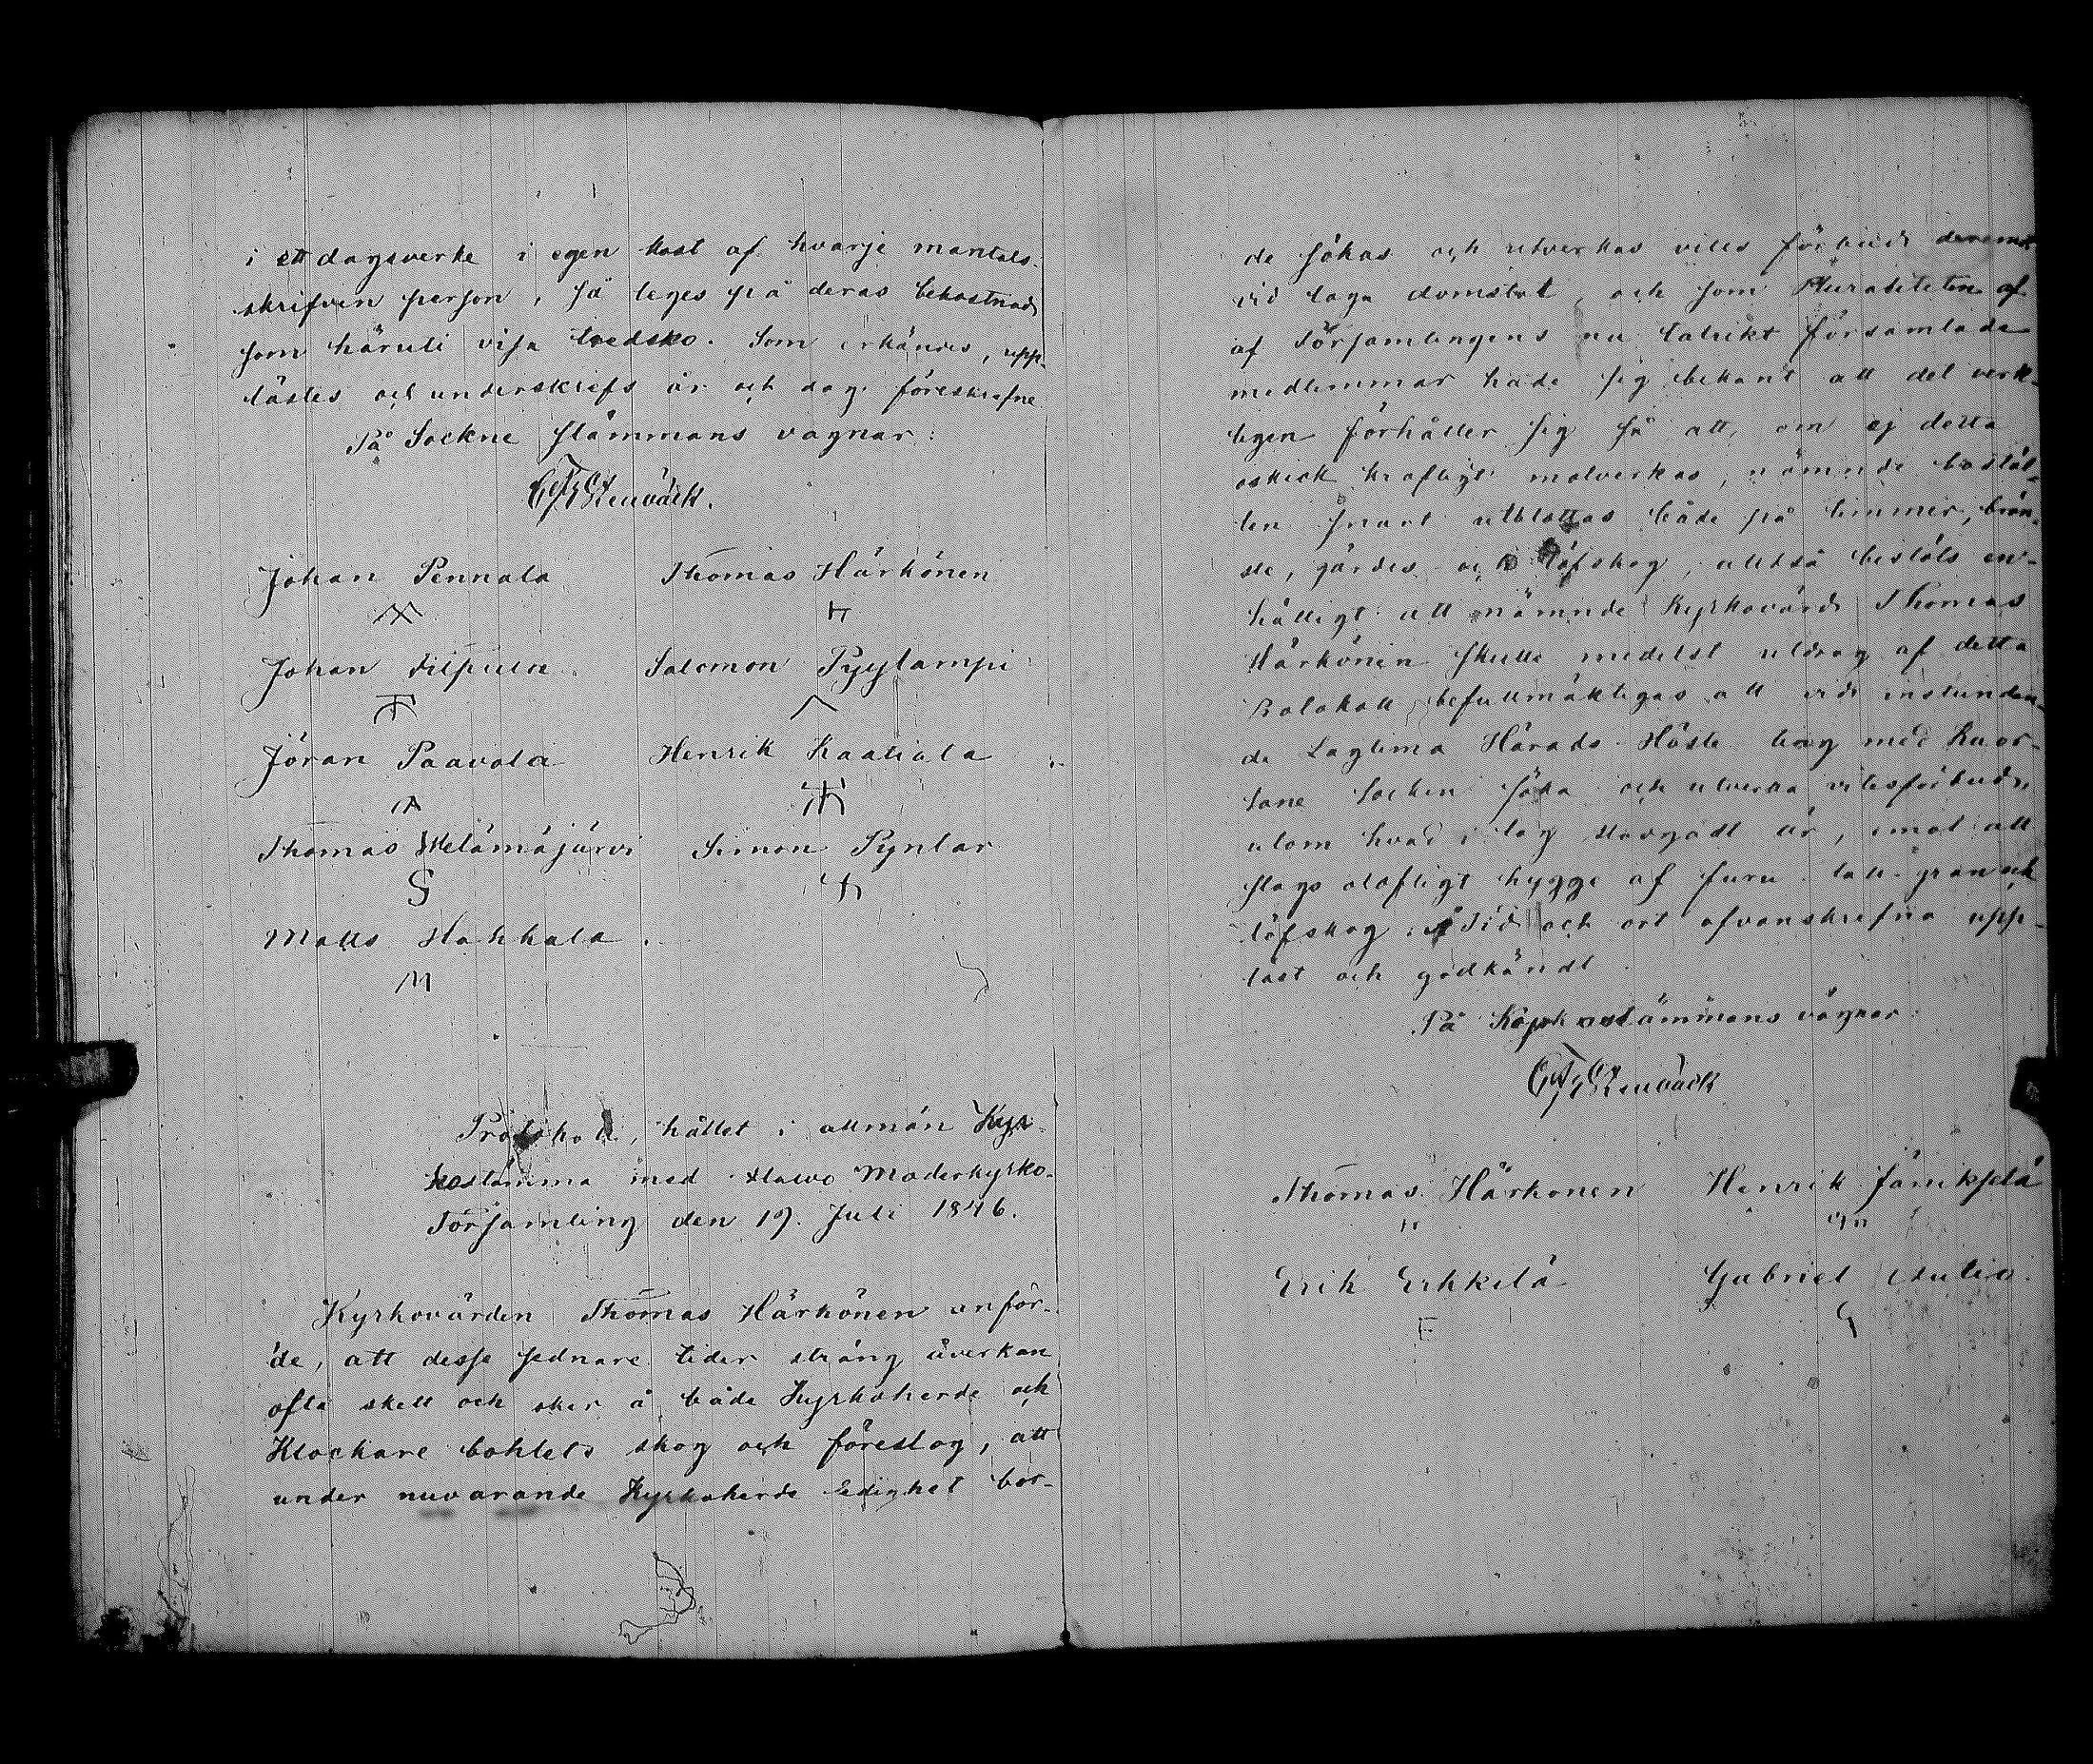 i ett dagsverke i egen kost af hvarje mantals-
skrifven person, så leges på deras bekostnad
som häruti visa tredsko. Som erkändes, upp-
lästes och underskrefs år och dag föreskrefne
På Sockne stämmans vägnar:
Stenbäck.
Johan Pennala Thomas Härkönen
Johan Filpula. Salomon Pyylampi
Jöran Paavola Henrik Kaatiala
Thomas Welämäjärvi Simon Pyntar
Matts Hahkala.
M
Protokoll, hållet i allmän Kyr-
kostämma med Alavo Moderkyrko-
Församling den 19. Juli 1846.
Kyrkovärden Thomas Härkönen anför-
de, att desse sednare tider sträng åverkan
ofta skett och sker å både Kyrkoherde och
Klockare bohlets skog och föreslog, att
under nuvarande Kyrkoherde ledighet bor-
de sökas och utverkas vites förbud deremot
vid laga domstol, och som Pluraliteten af
af Församlingens nu talrikt församlade
medlemmar hade sig bekant att det verk-
ligen förhåller sig så att, om ej detta
oskick kraftigt motverkas, nämnde boställ-
len snart utblottas både på timmer, brän-
sle, gärdes och löfskog, alltså beslöts en-
hälligt att nämnde Kyrkovärd Thomas
Härkönen skulle medelst utdrag af detta
Protokoll befullmäktigas att vid instundan-
de Lagtima Härads Höste ting med Kuor-
tane Socken söka och utverka vitesförbud,
utom hvad i lag stadgadt är, emot all
slags olofligt hygge af furu- tall- gran och
löfskog. Tid och ort ofvanskrefna upp-
läst och godkändt.
På Kyrkostämmans vägnar:
Stenbäck
Thomas Härkönen Henrik Jänikselä
Erik Erkkilä Gabriel Aulio.
E G